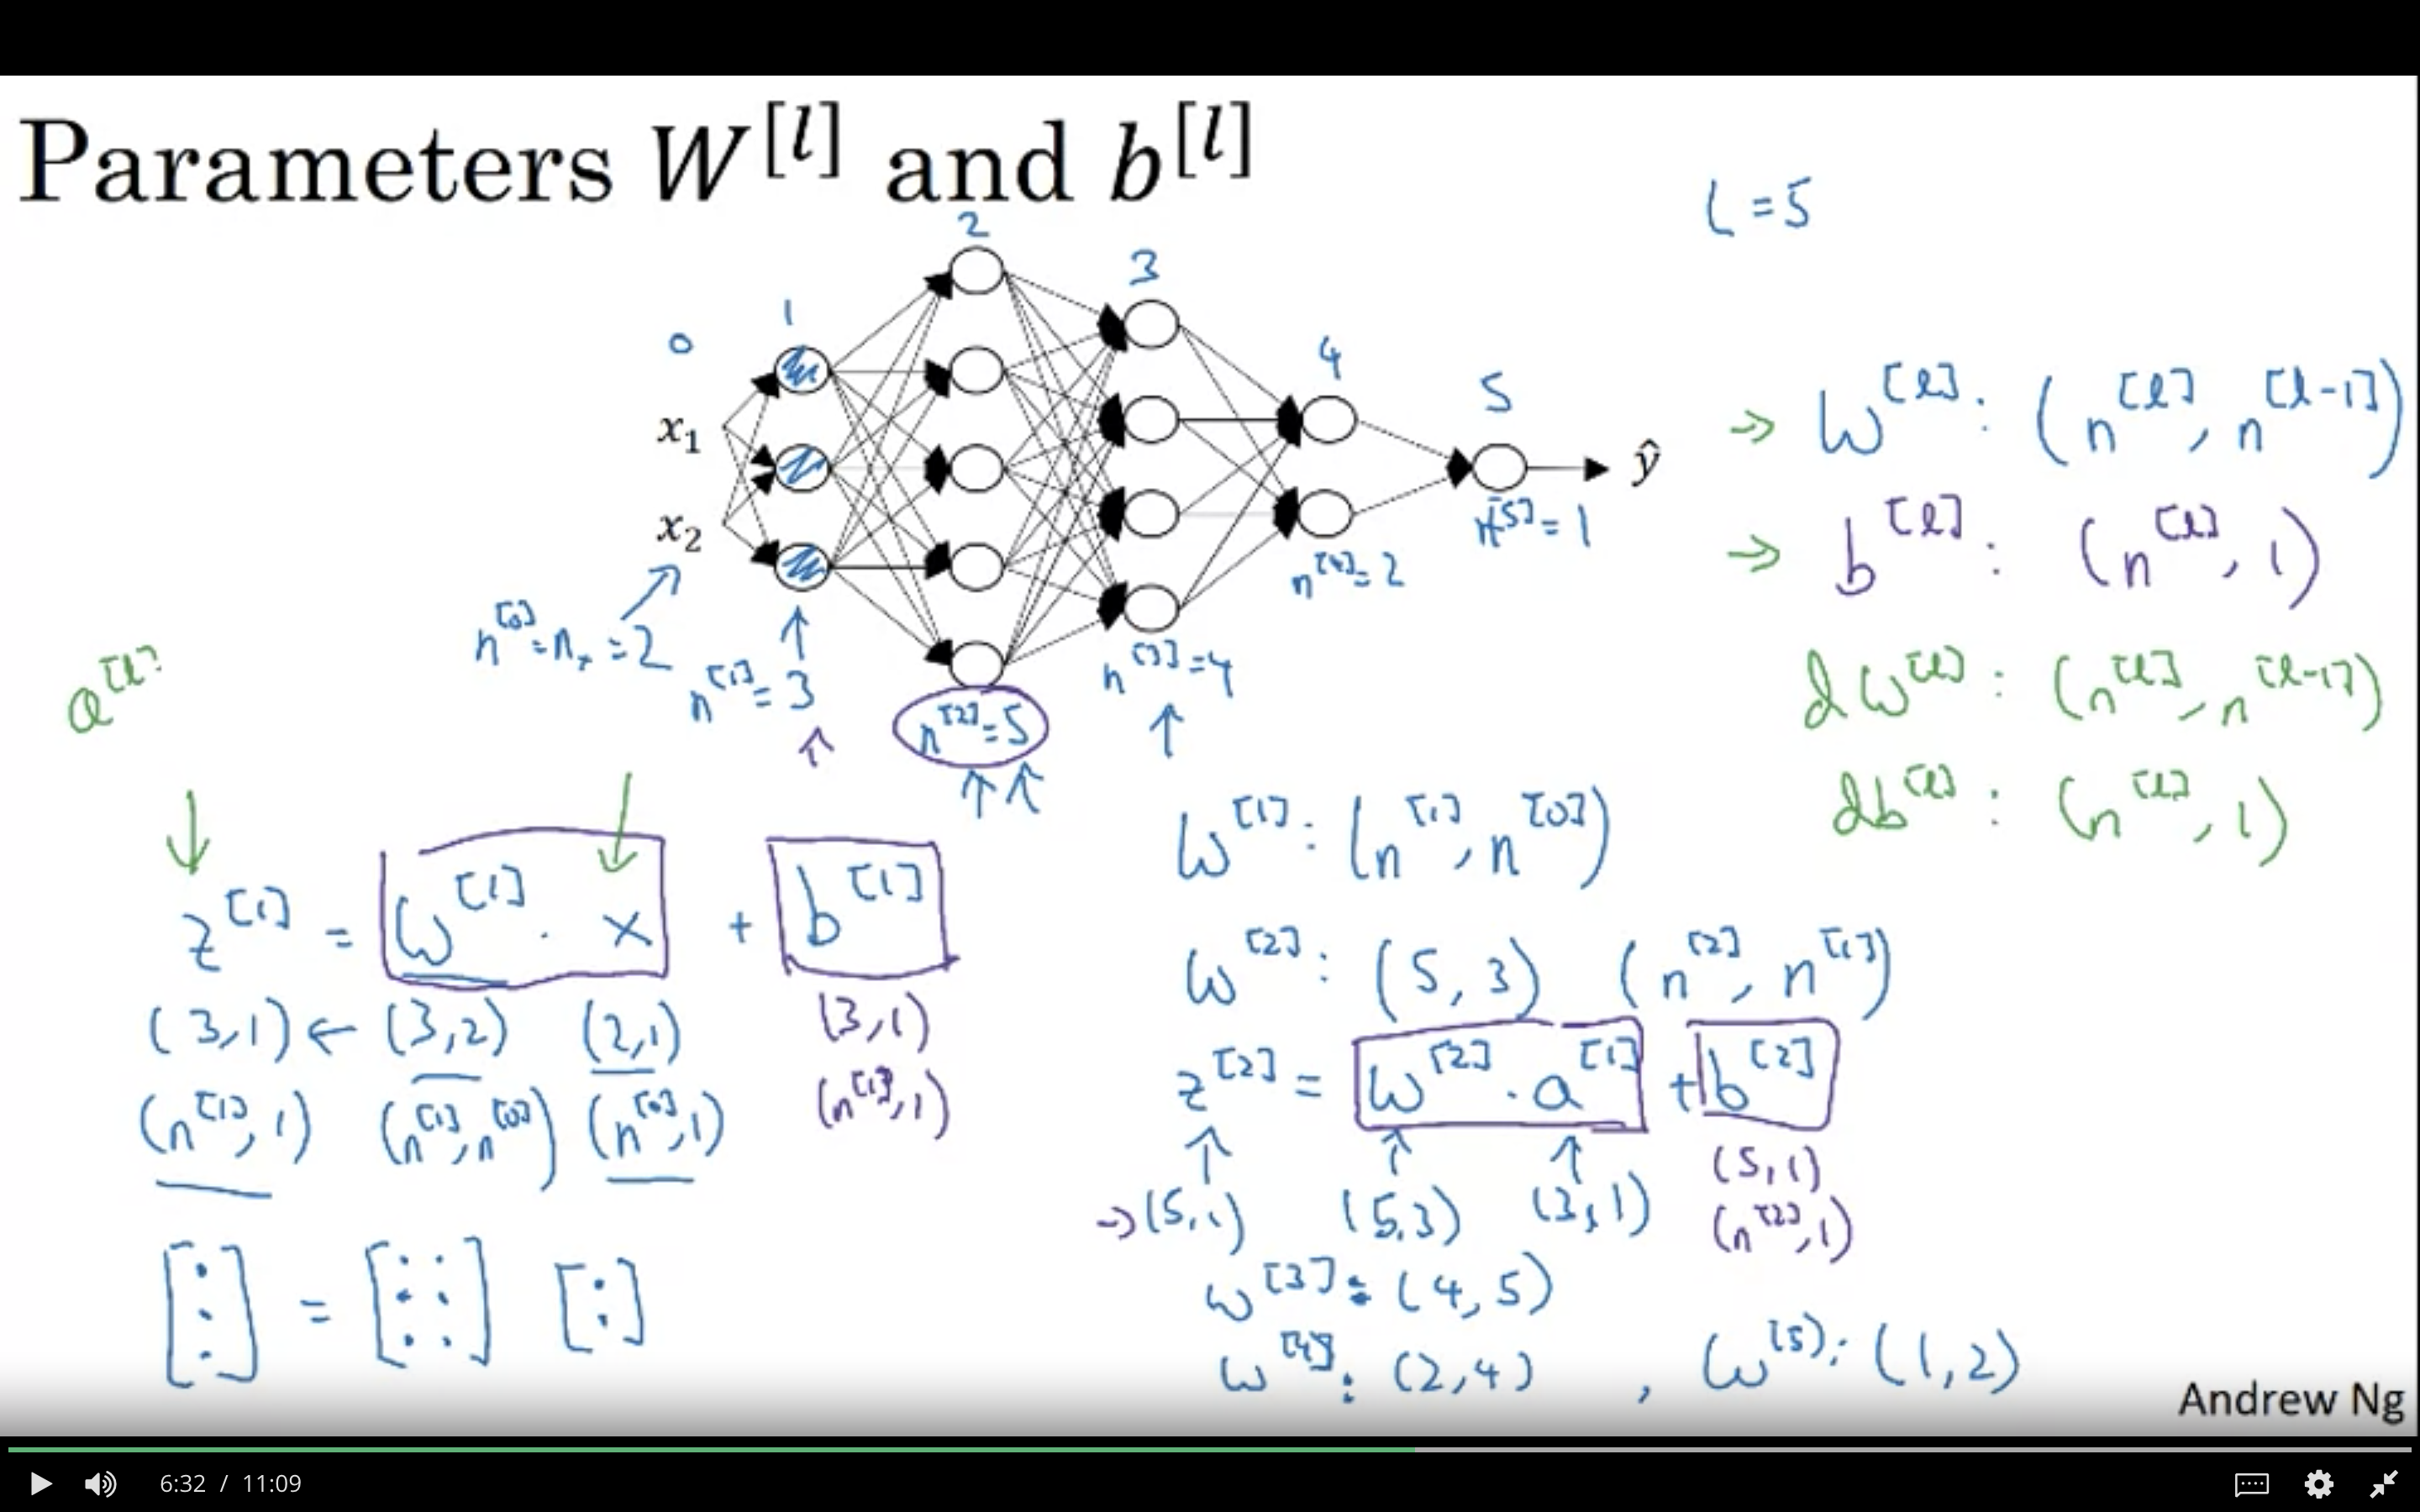 Parameters W^[l] and b^[l]
L = 5
0
1
2
3
4
5
x₁
x₂
ŷ
n^[0] = nₓ = 2
n^[1] = 3
n^[2] = 5
n^[3] = 4
n^[4] = 2
n^[5] = 1
W^[l] : (n^[l], n^[l-1])
b^[l] : (n^[l], 1)
dW^[l] : (n^[l], n^[l-1])
db^[l] : (n^[l], 1)
a^[l]
z^[1] = W^[1] · x + b^[1]
(3,1) ← (3,2) (2,1) (3,1)
(n^[1], 1) (n^[1], n^[0]) (n^[0], 1) (n^[1], 1)
=
W^[1] : (n^[1], n^[0])
W^[2] : (5, 3) (n^[2], n^[1])
z^[2] = W^[2] · a^[1] + b^[2]
→ (5,1) (5,3) (3,1) (5,1)
(n^[2], 1)
W^[3] : (4, 5)
W^[4] : (2, 4) , W^[5] : (1, 2)
Andrew Ng
6:32 / 11:09